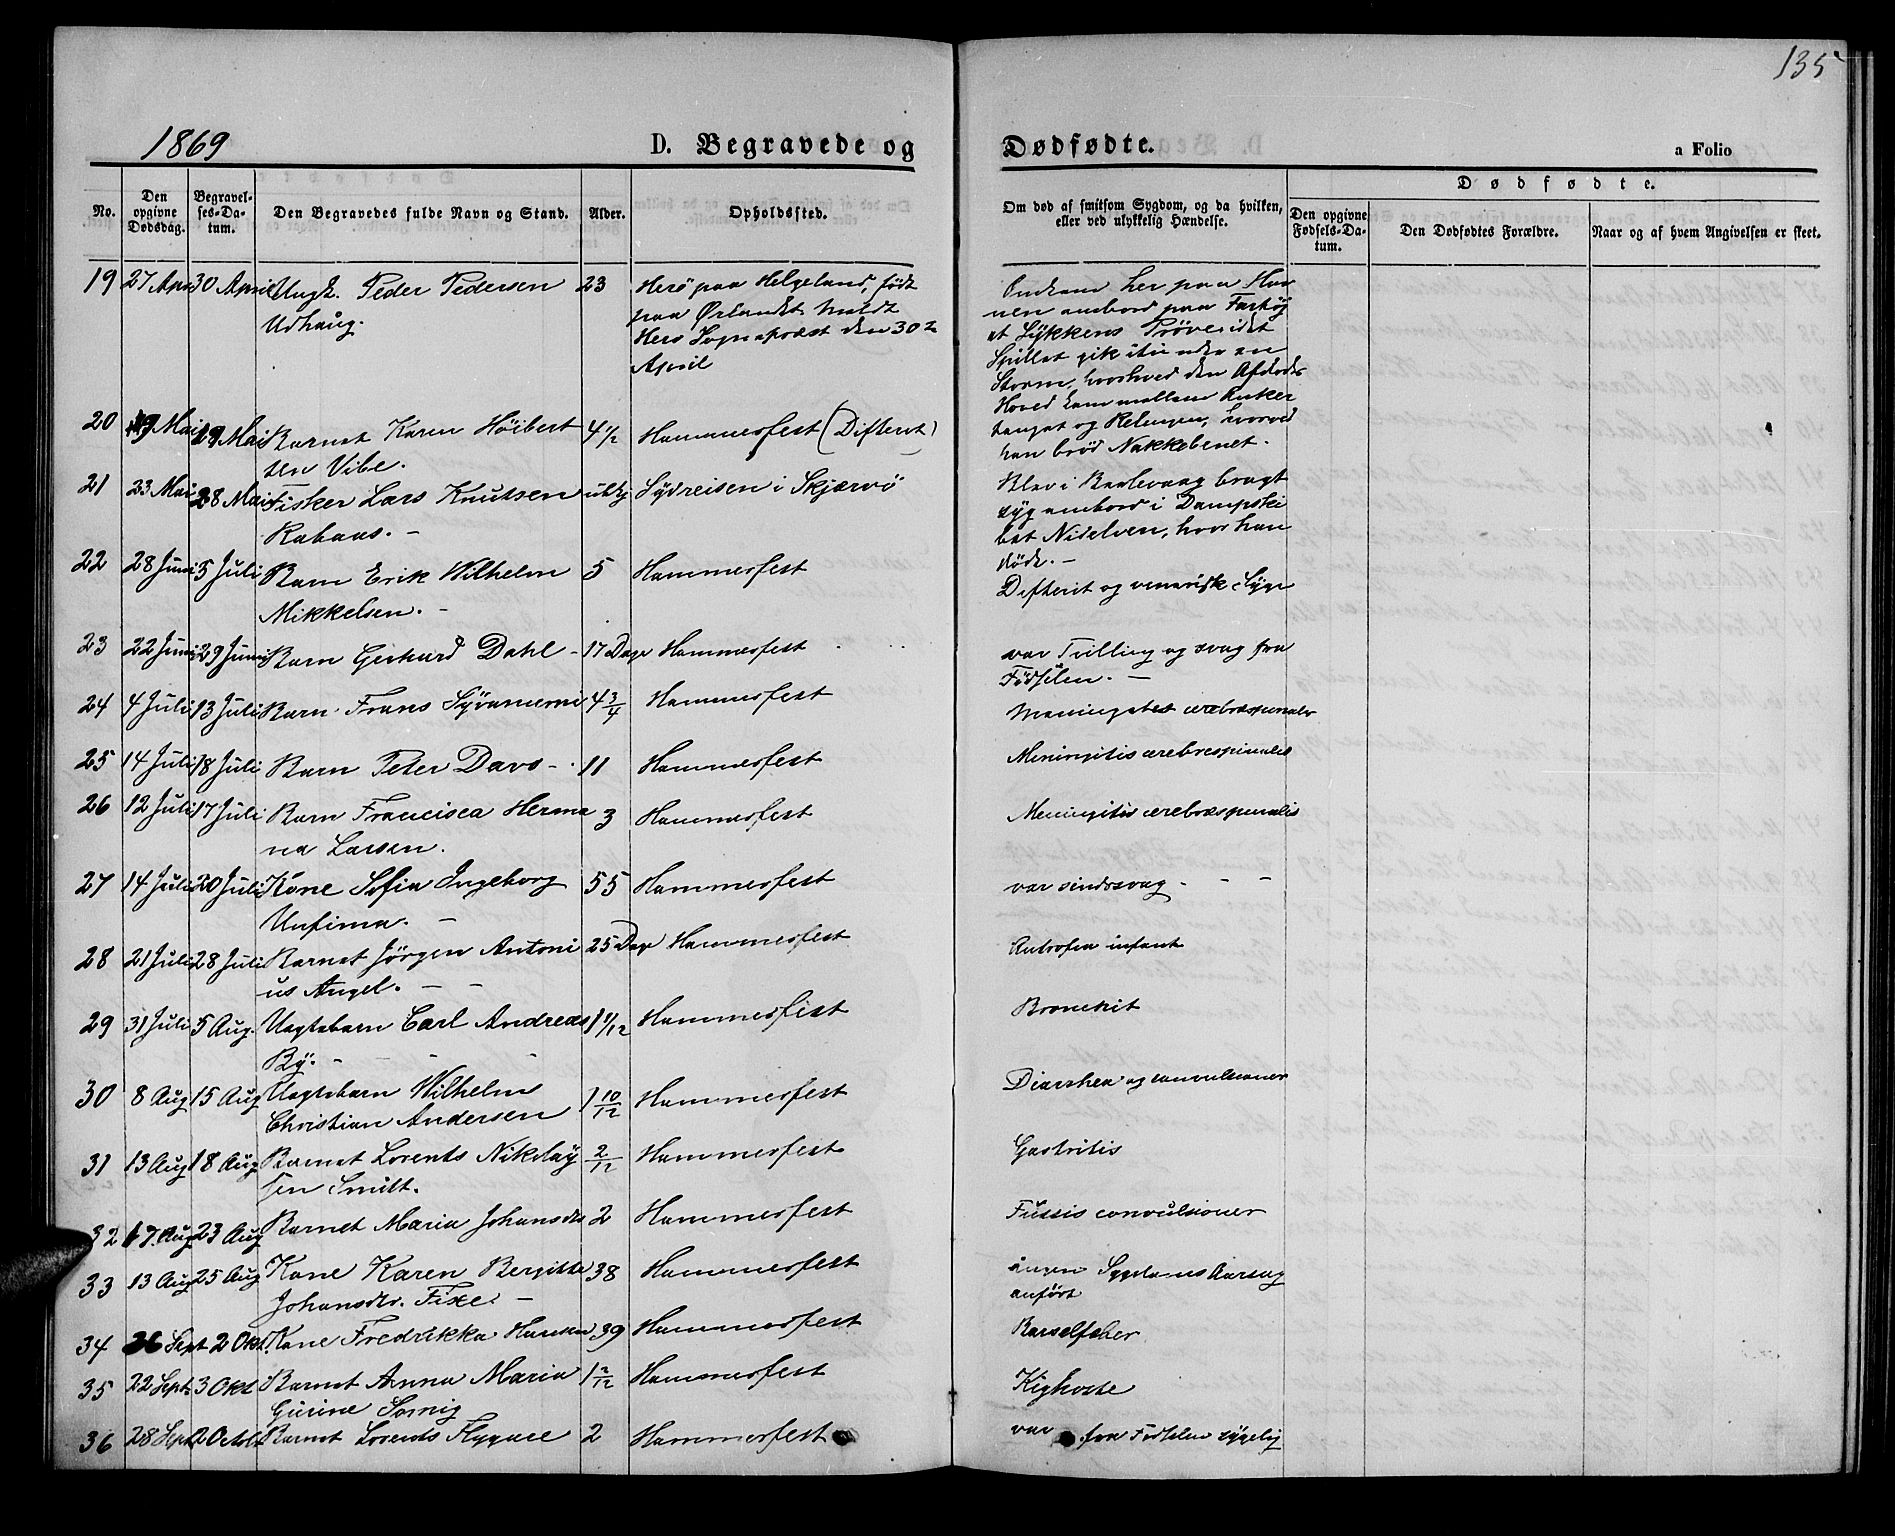 135
1869
D. Begravede og
Dødfødte.
a Folio
No.
Den opgivne Dødsdag.
Begravelses-Datum.
Den Begravedes fulde Navn og Stand.
Alder.
Opholdssted.
Om død af smitsom Sygdom, og da hvilken, eller ved ulykkelig Hændelse.
Dødfødte.
Den opgivne Fødsels-Datum.
Den Dødfødtes Forældre.
Naar og af hvem Angivelsen er skeet.
19 27 Apr 30 April Ungk. Peder Pedersen 23 Herö paa Helgeland, födt
Udhaug. paa Ørlandet. Meldt
Herö Sognepræst den 30
April
Omkom her paa Hav
nen ombord paa Fartöj
et Lykkens Pröve idet
Spillet gik itu under en
Storm, hvorved den Afdödes
Hoved kom mellem Anker
tanget og Relingen, hvorved
han bröd Nakkebenet.
20 19 Mai 29 Mai Barnet Karen Höibert 4 1/2 Hammerfest (Difterit)
sen Vibe.
21 23 Mai 28 Mai Fisker Lars Knutsen Sydreisen i Skjærvö
Rahaus.
Blev i Baolevaag bragt
syg ombord i Dampski
bet Nidelven, hvor han
döde. -
22 28 Juni 5 Juli Barn Erik Wilhelm 5 Hammerfest
Mikkelsen. -
Difterit og venerisk Syge
23 22 Juni 29 Juni Barn Gerhard Dahl - 17 Dage Hammerfest
var Tvilling og svag fra
Födselen. -
24 4 Juli 13 Juli Barn Frans 4 3/4 Hammerfest
Meningites cerebrospinalis
25 14 Juli 18 Juli Barn Peter Davo - 11 Hammerfest Meningitis cerebrospinalis
26 12 Juli 17 Juli Barn Francisca Herma 3 Hammerfest Meningitis cerebrospinalis
na Larsen.
27 14 Juli 20 Juli Kone Sofia Ingeborg 55 Hammerfest var sindssvag - - -
Unfima. -
28 21 Juli 28 Juli Barnet Jörgen Antoni 25 Dage Hammerfest Autrofia infant
us Angel. - -
29 31 Juli 5 Aug. Uægtebarn Carl Andreas 1 11/12 Hammerfest Bronckit
By. -
30 8 Aug 15 Aug Uægtebarn Wilhelm 1 10/12 Hammerfest Diarrhea og convulsioner
Christian Andersen
31 13 Aug 18 Aug Barnet Lorents Nikolay 2/12 Hammerfest Gastritis
sen Smitt.
32 17. Aug 23 Aug Barnet Maria Johansdtr 2 Hammerfest Tussis convulsioner
33 13 Aug 25 Aug Kone Karen Bergitte 38 Hammerfest ingen Sygdoms Aarsag
Johansdtr. Fixe. - anfört
34 26 Sept 2 Okt. Kone Fredrikka Hansen 39 Hammerfest Barselfeber
35 22 Sept 3 Okt Barnet Anna Maria 1 2/12 Hammerfest Kighoste
Gurine Sornig
36 28 Sept 2 Octob Barnet Lorents Flygare 2 Hammerfest var fra Födselen sygelig